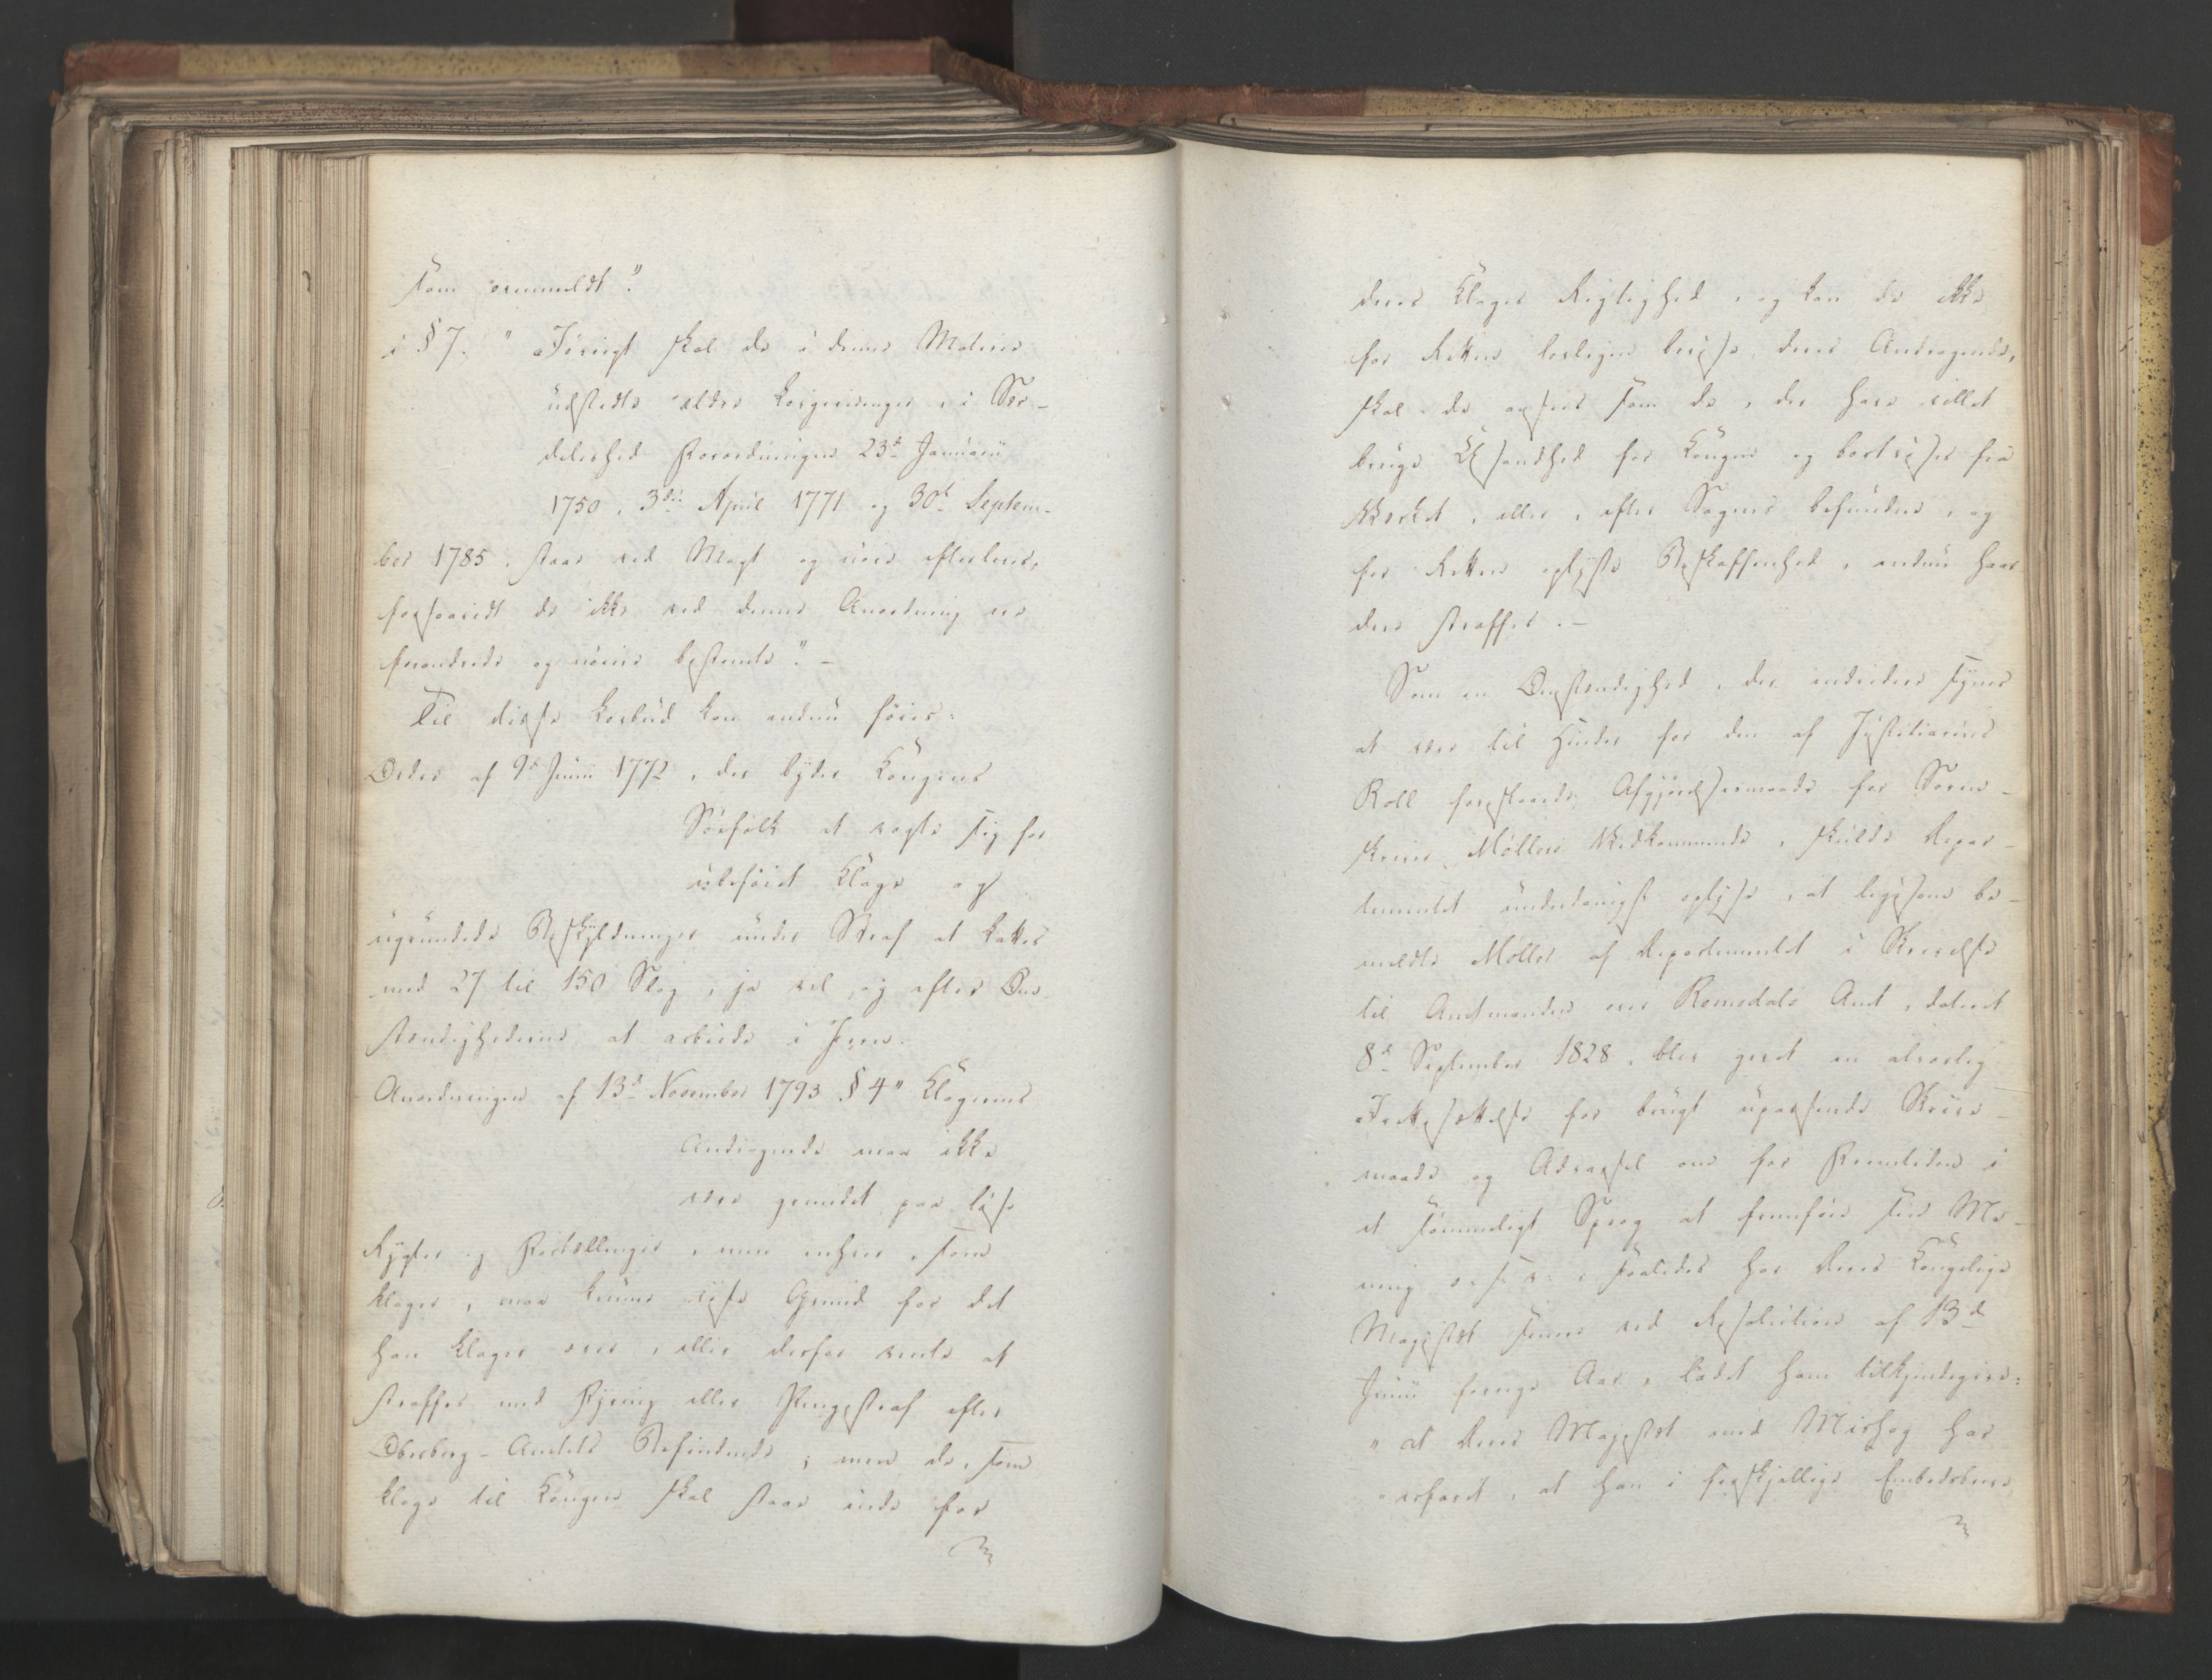 som ovenmeldt."
i § 7. "Iøvrigt skal de i denne Materie
udstedte ældre Lovgivninger, i Sær-
deleshed Forordningen 23de Januarii
1750, 3die April 1771 og 30te Septem-
ber 1785, staae ved Magt og nøie efterleves,
forsaavidt de ikke ved denne Anordning ere
forandrede og nøiere bestemte." -
Til disse Lovbud kan endnu føies:
Ordre af 9de Junii 1772, der byder Kongens
Søefolk at vogte sig for
ubeføiet Klage og
ugrundede Beskyldninger under Straf at kattes
med 27 til 150 Slag, ja vel og efter Om-
stændighederne at arbeide i Jern.
Anordningen af 13de November 1793 § 4 "Klagerens
Andragende maa ikke
være grundet paa løse
Rygter og Fortællinger, men enhver, som
klager, maa kunne vise Grund for det
han klager over, eller derfor vente at
straffes med Fjering eller Pengestraf efter
Oberberg-Amtets Befindende; men de, som
klage til Kongen skal staae inde for
deres Klages Rigtighed, og kan de ikke
for Retten lovligen bevise deres Andragende,
skal de ansees som de, der have villet
bruge Usandhed for Kongen og bortvises fra
Værket, eller, efter Sagens befundne, og
for Retten oplyste Beskaffenhed, endnu haar-
dere straffes. -
Som en Omstændighed, der endvidere synes
at være til Hinder for den af Justitiarius
Roll foreslaaede Afgjørelsesmaade for Soren-
skriver Møllers Vedkommende, skulde Depar-
tementet underdanigst oplyse, at ligesom be-
meldte Møller af Departementet i Skrivelse
til Amtmanden over Romsdals Amt, dateret
8de September 1828, blev gjort en alvorlig
Irettesættelse for brugt upassende Skrive-
maade og Advarsel om for Fremtiden i
et sømmeligt Sprog at fremføre sin Me-
ning o. s. v., saaledes har Deres Kongelige
Majestæt senere ved Resolution af 13de
Junii forrige Aar, ladet ham tilkjendegive:
"at Deres Majestæt med Mishag har
"erfaret, at han i forskjellige Embedsbreve